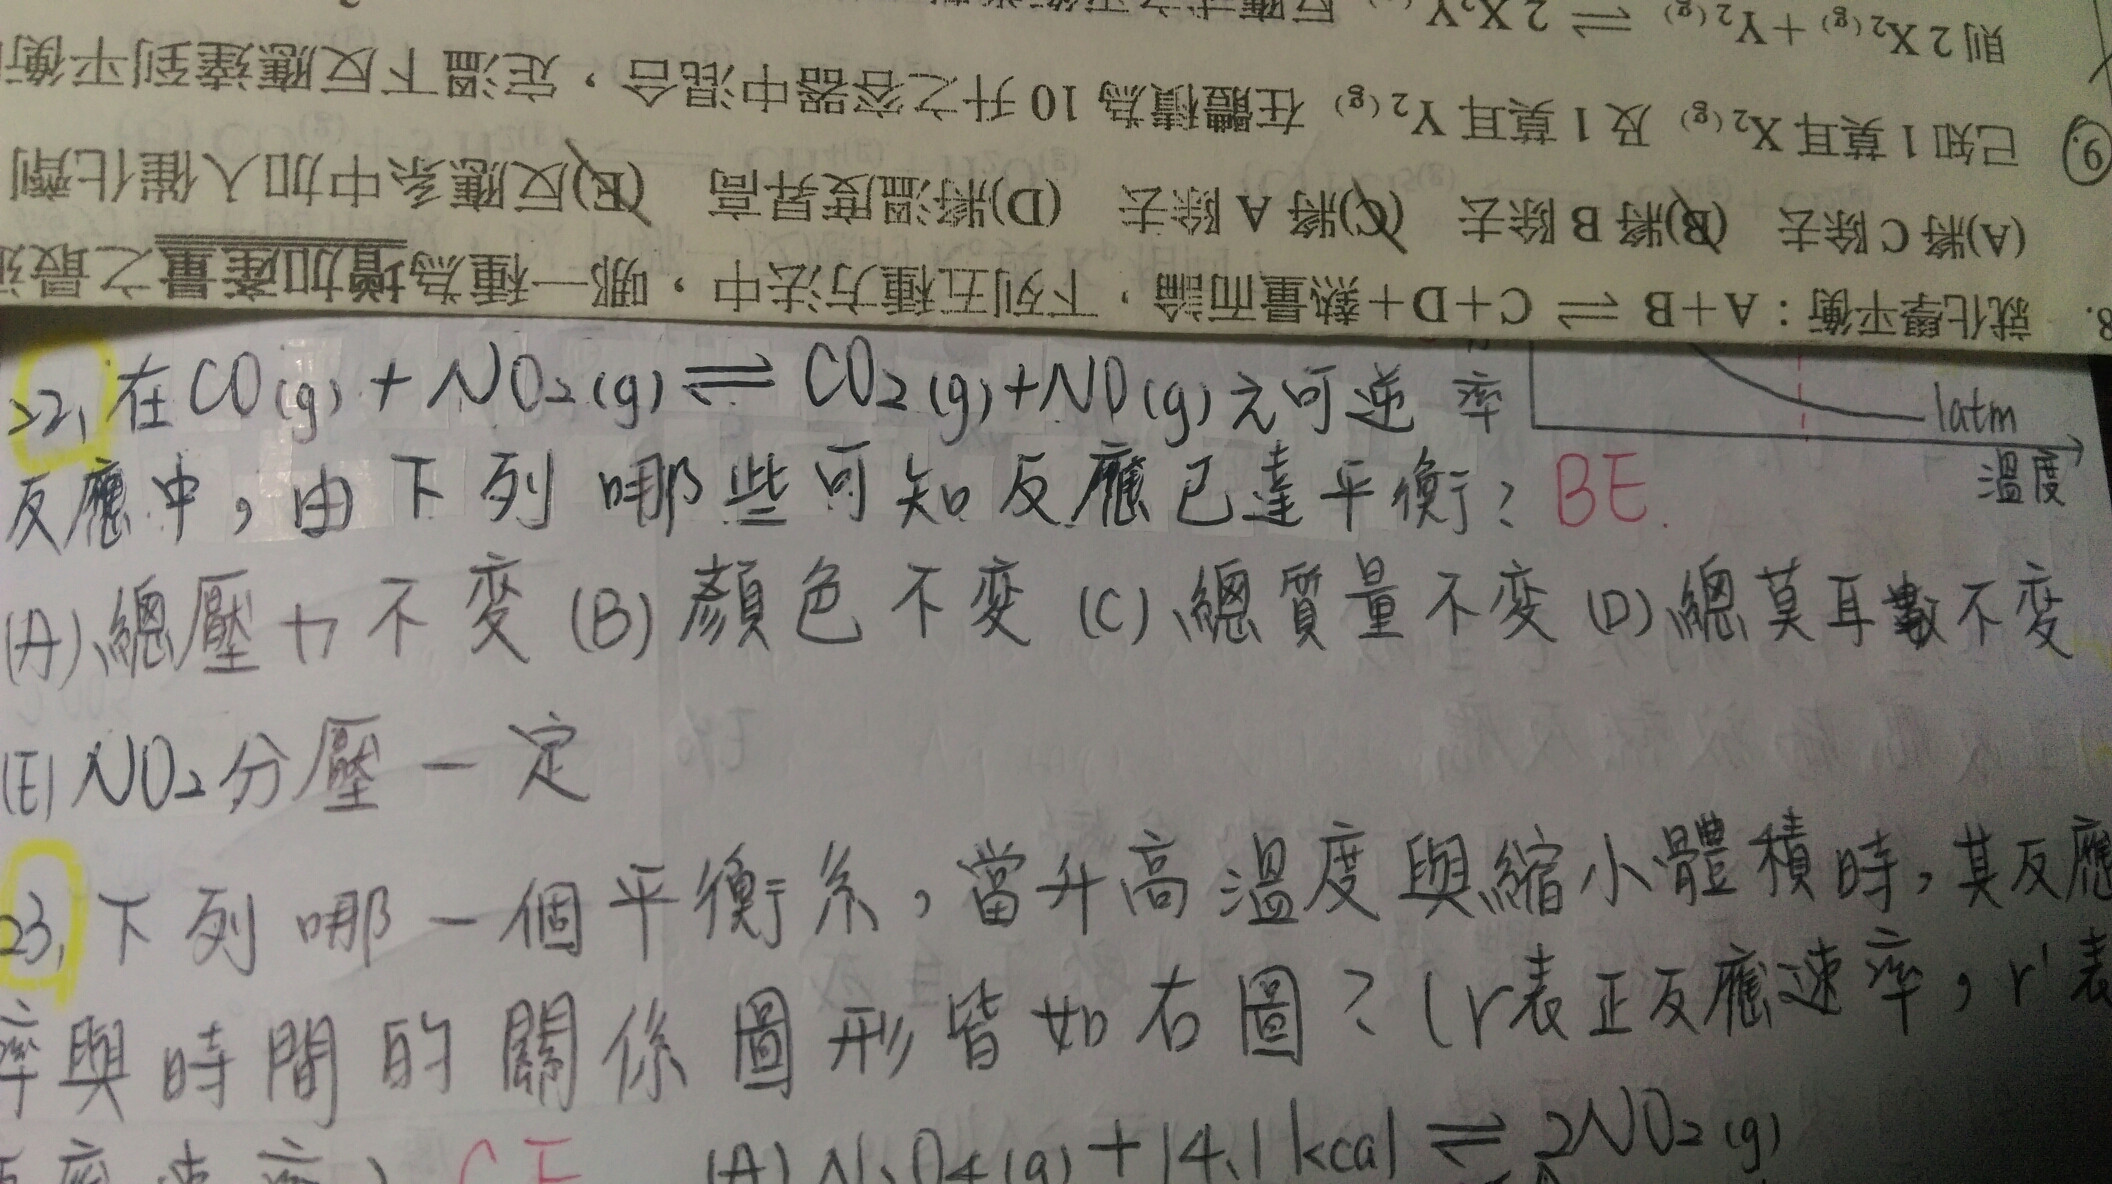 22. 在CO(g) + NO₂(g) ⇌ CO₂(g)+NO(g)之可逆
反應中，由下列哪些可知反應已達平衡？ BE.
(A)總壓力不變 (B)顏色不變 (C)總質量不變 (D)總莫耳數不變
(E)NO₂分壓一定
23. 下列哪一個平衡系，當升高溫度與縮小體積時，其反應
率與時間的關係圖形皆如右圖？(r表正反應速率，r'表
反應速率) CE (A) N₂O₄(g)+14.1kcal ⇌ 2NO₂(g)
率
1atm
溫度
8. 就化學平衡：A+B ⇌ C+D+熱量而論，下列五種方法中，哪一種為增加產量之最
(A)將C除去 (B)將B除去 (C)將A除去 (D)將溫度昇高 (E)反應系中加入催化劑
9. 已知1莫耳X₂(g) 及1莫耳Y₂(g) 在體積為10升之容器中混合，定溫下反應達到平衡
則2X₂(g)+Y₂(g) ⇌ 2X₂Y